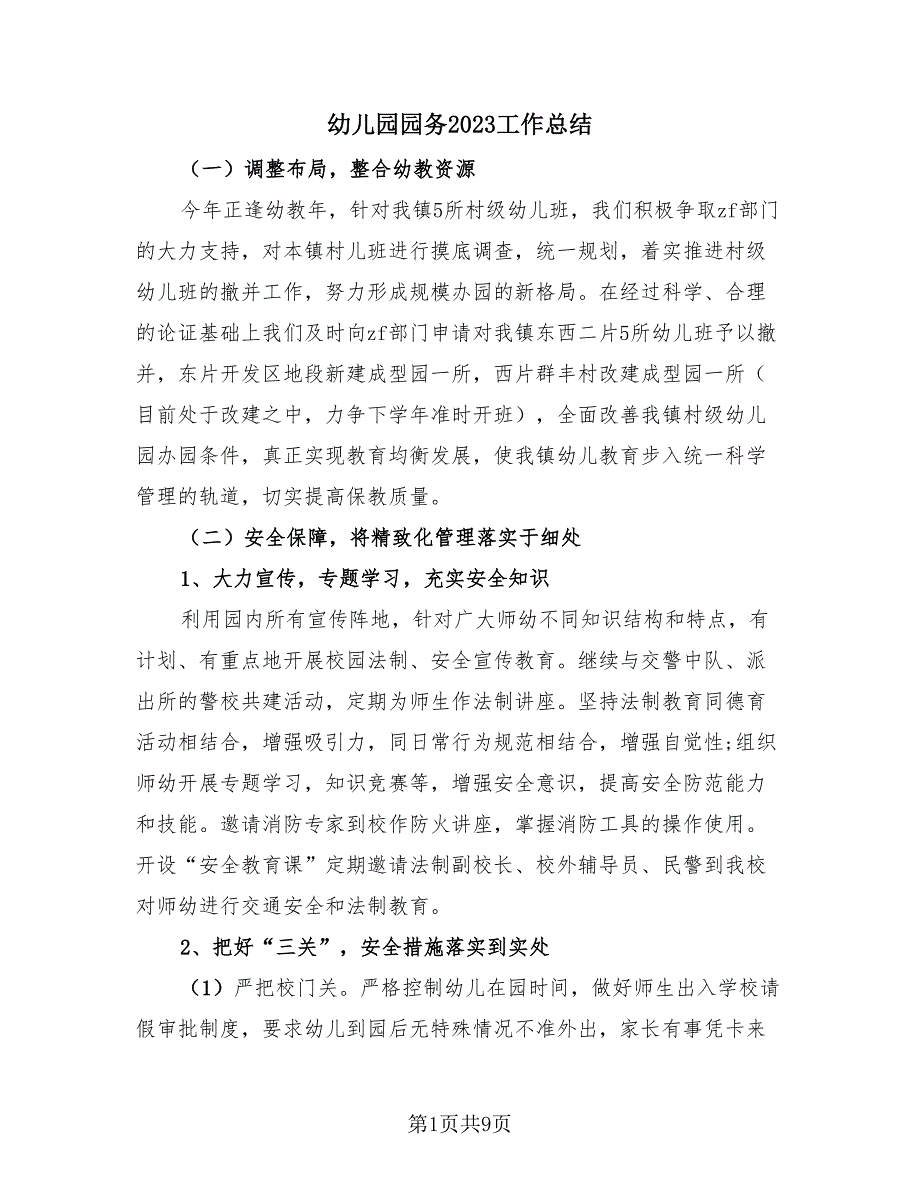 幼儿园园务2023工作总结
（一）调整布局，整合幼教资源
今年正逢幼教年，针对我镇5所村级幼儿班，我们积极争取zf部门
的大力支持，对本镇村儿班进行摸底调查，统一规划，着实推进村级
幼儿班的撤并工作，努力形成规模办园的新格局。在经过科学、合理
的论证基础上我们及时向zf部门申请对我镇东西二片5所幼儿班予以撤
并，东片开发区地段新建成型园一所，西片群丰村改建成型园一所（
目前处于改建之中，力争下学年准时开班），全面改善我镇村级幼儿
园办园条件，真正实现教育均衡发展，使我镇幼儿教育步入统一科学
管理的轨道，切实提高保教质量。
（二）安全保障，将精致化管理落实于细处
1、大力宣传，专题学习，充实安全知识
利用园内所有宣传阵地，针对广大师幼不同知识结构和特点，有
计划、有重点地开展校园法制、安全宣传教育。继续与交警中队、派
出所的警校共建活动，定期为师生作法制讲座。坚持法制教育同德育
活动相结合，增强吸引力，同日常行为规范相结合，增强自觉性;组织
师幼开展专题学习，知识竞赛等，增强安全意识，提高安全防范能力
和技能。邀请消防专家到校作防火讲座，掌握消防工具的操作使用。
开设“安全教育课”定期邀请法制副校长、校外辅导员、民警到我校
对师幼进行交通安全和法制教育。
2、把好“三关”，安全措施落实到实处
（1）严把校门关。严格控制幼儿在园时间，做好师生出入学校请
假审批制度，要求幼儿到园后无特殊情况不准外出，家长有事凭卡来
第1页共9页